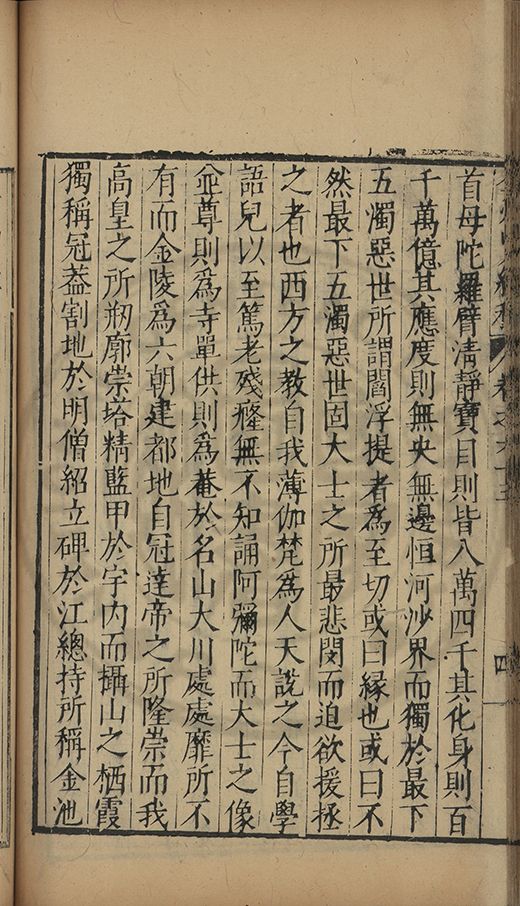 首母陀羅臂清靜寶目則皆八萬四千其化身則百
千萬億其應度則無央無邊恒河沙界而獨於最下
五濁惡世所謂閻浮提者為至切或曰緣也或曰不
然最下五濁惡世固大士之所最悲閔而迫欲援拯
之者也西方之教自我薄伽梵為人天說之今自學
語兒以至篤老殘癃無不知誦阿彌陀而大士之像
並尊則為寺單供則為菴於名山大川處處靡所不
有而金陵為六朝建都地自冠達帝之所隆崇而我
高皇之所刱廓崇塔精藍甲於宇內而攝山之栖霞
獨稱冠葢割地於明僧紹立碑於江總持所稱金池